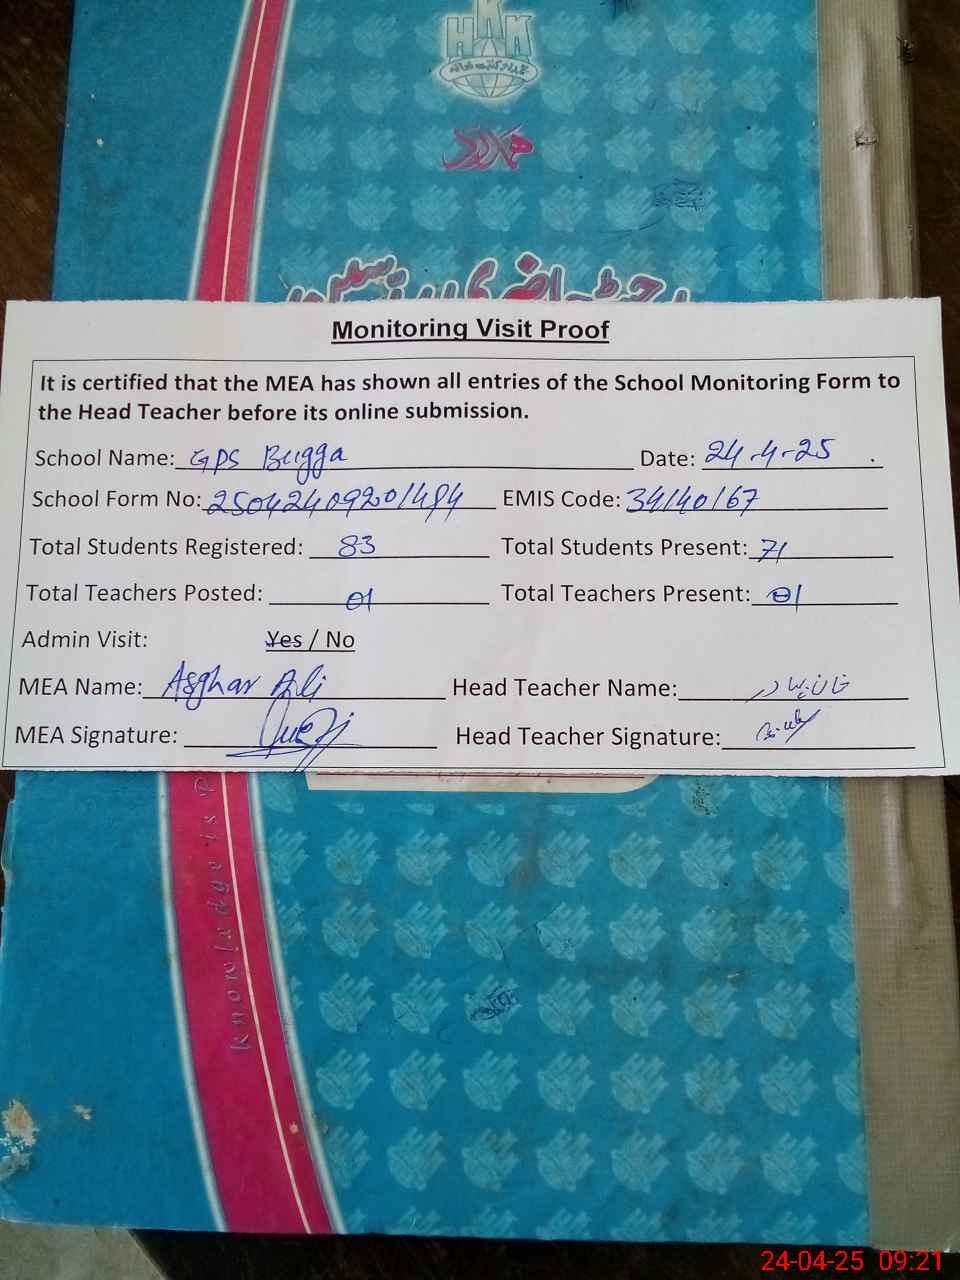 HKK
ہمدرد
Monitoring Visit Proof
It is certified that the MEA has shown all entries of the School Monitoring Form to
the Head Teacher before its online submission.
School Name: GPS Bugga Date: 24-4-25
School Form No: 25042409201484 EMIS Code: 34140167
Total Students Registered: 83 Total Students Present: 71
Total Teachers Posted: 01 Total Teachers Present: 01
Admin Visit: Yes / No
MEA Name: Asghar Ali Head Teacher Name:
MEA Signature: Head Teacher Signature:
knowledge is
24-04-25 09:21